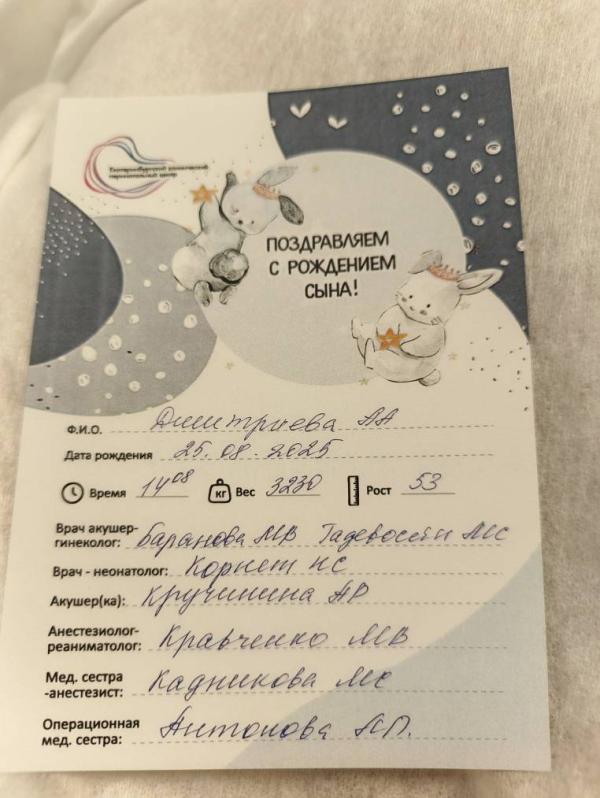 Екатеринбургский клинический
перинатальный центр
ПОЗДРАВЛЯЕМ
С РОЖДЕНИЕМ
СЫНА!
Ф.И.О. Дмитриева АА
Дата рождения 25.08.2025
Время 14 08 кг Вес 3230 Рост 53
Врач акушер-
гинеколог: Баранова МВ Тадевосян МС
Врач - неонатолог: Корнет НС
Акушер(ка): Кручинина АР
Анестезиолог-
реаниматолог: Кравченко МВ
Мед. сестра
-анестезист: Кадникова МС
Операционная
мед. сестра: Антонова АП.